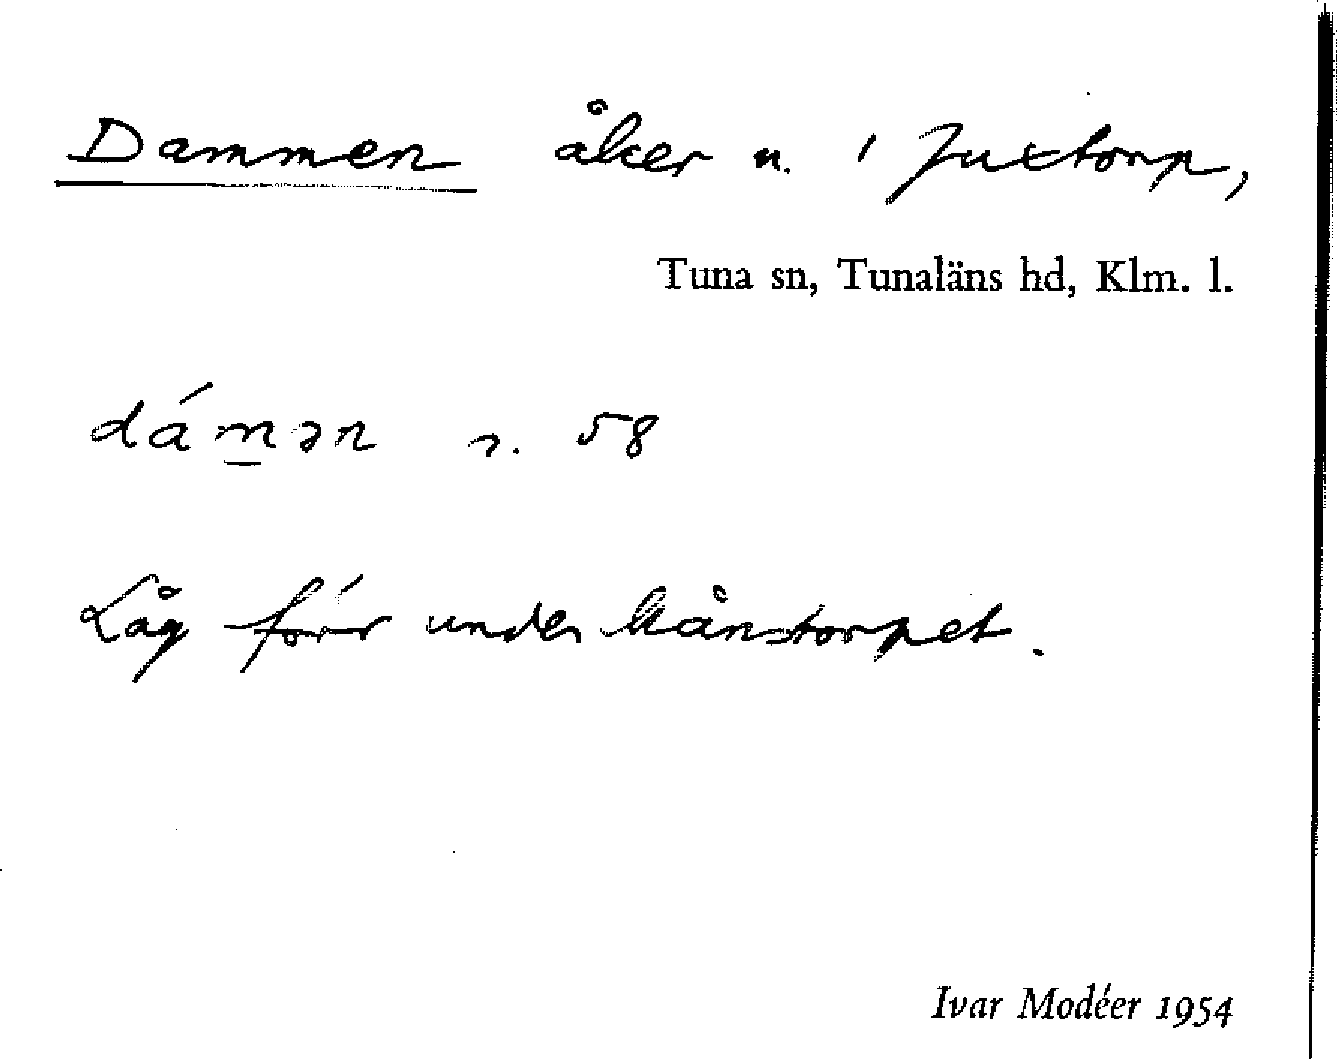 Dammen åker n. i Juxtorp,
Tuna sn, Tunaläns hd, Klm. l.
dámən n. 58
Låg förr under Månstorpet.
Ivar Modéer 1954